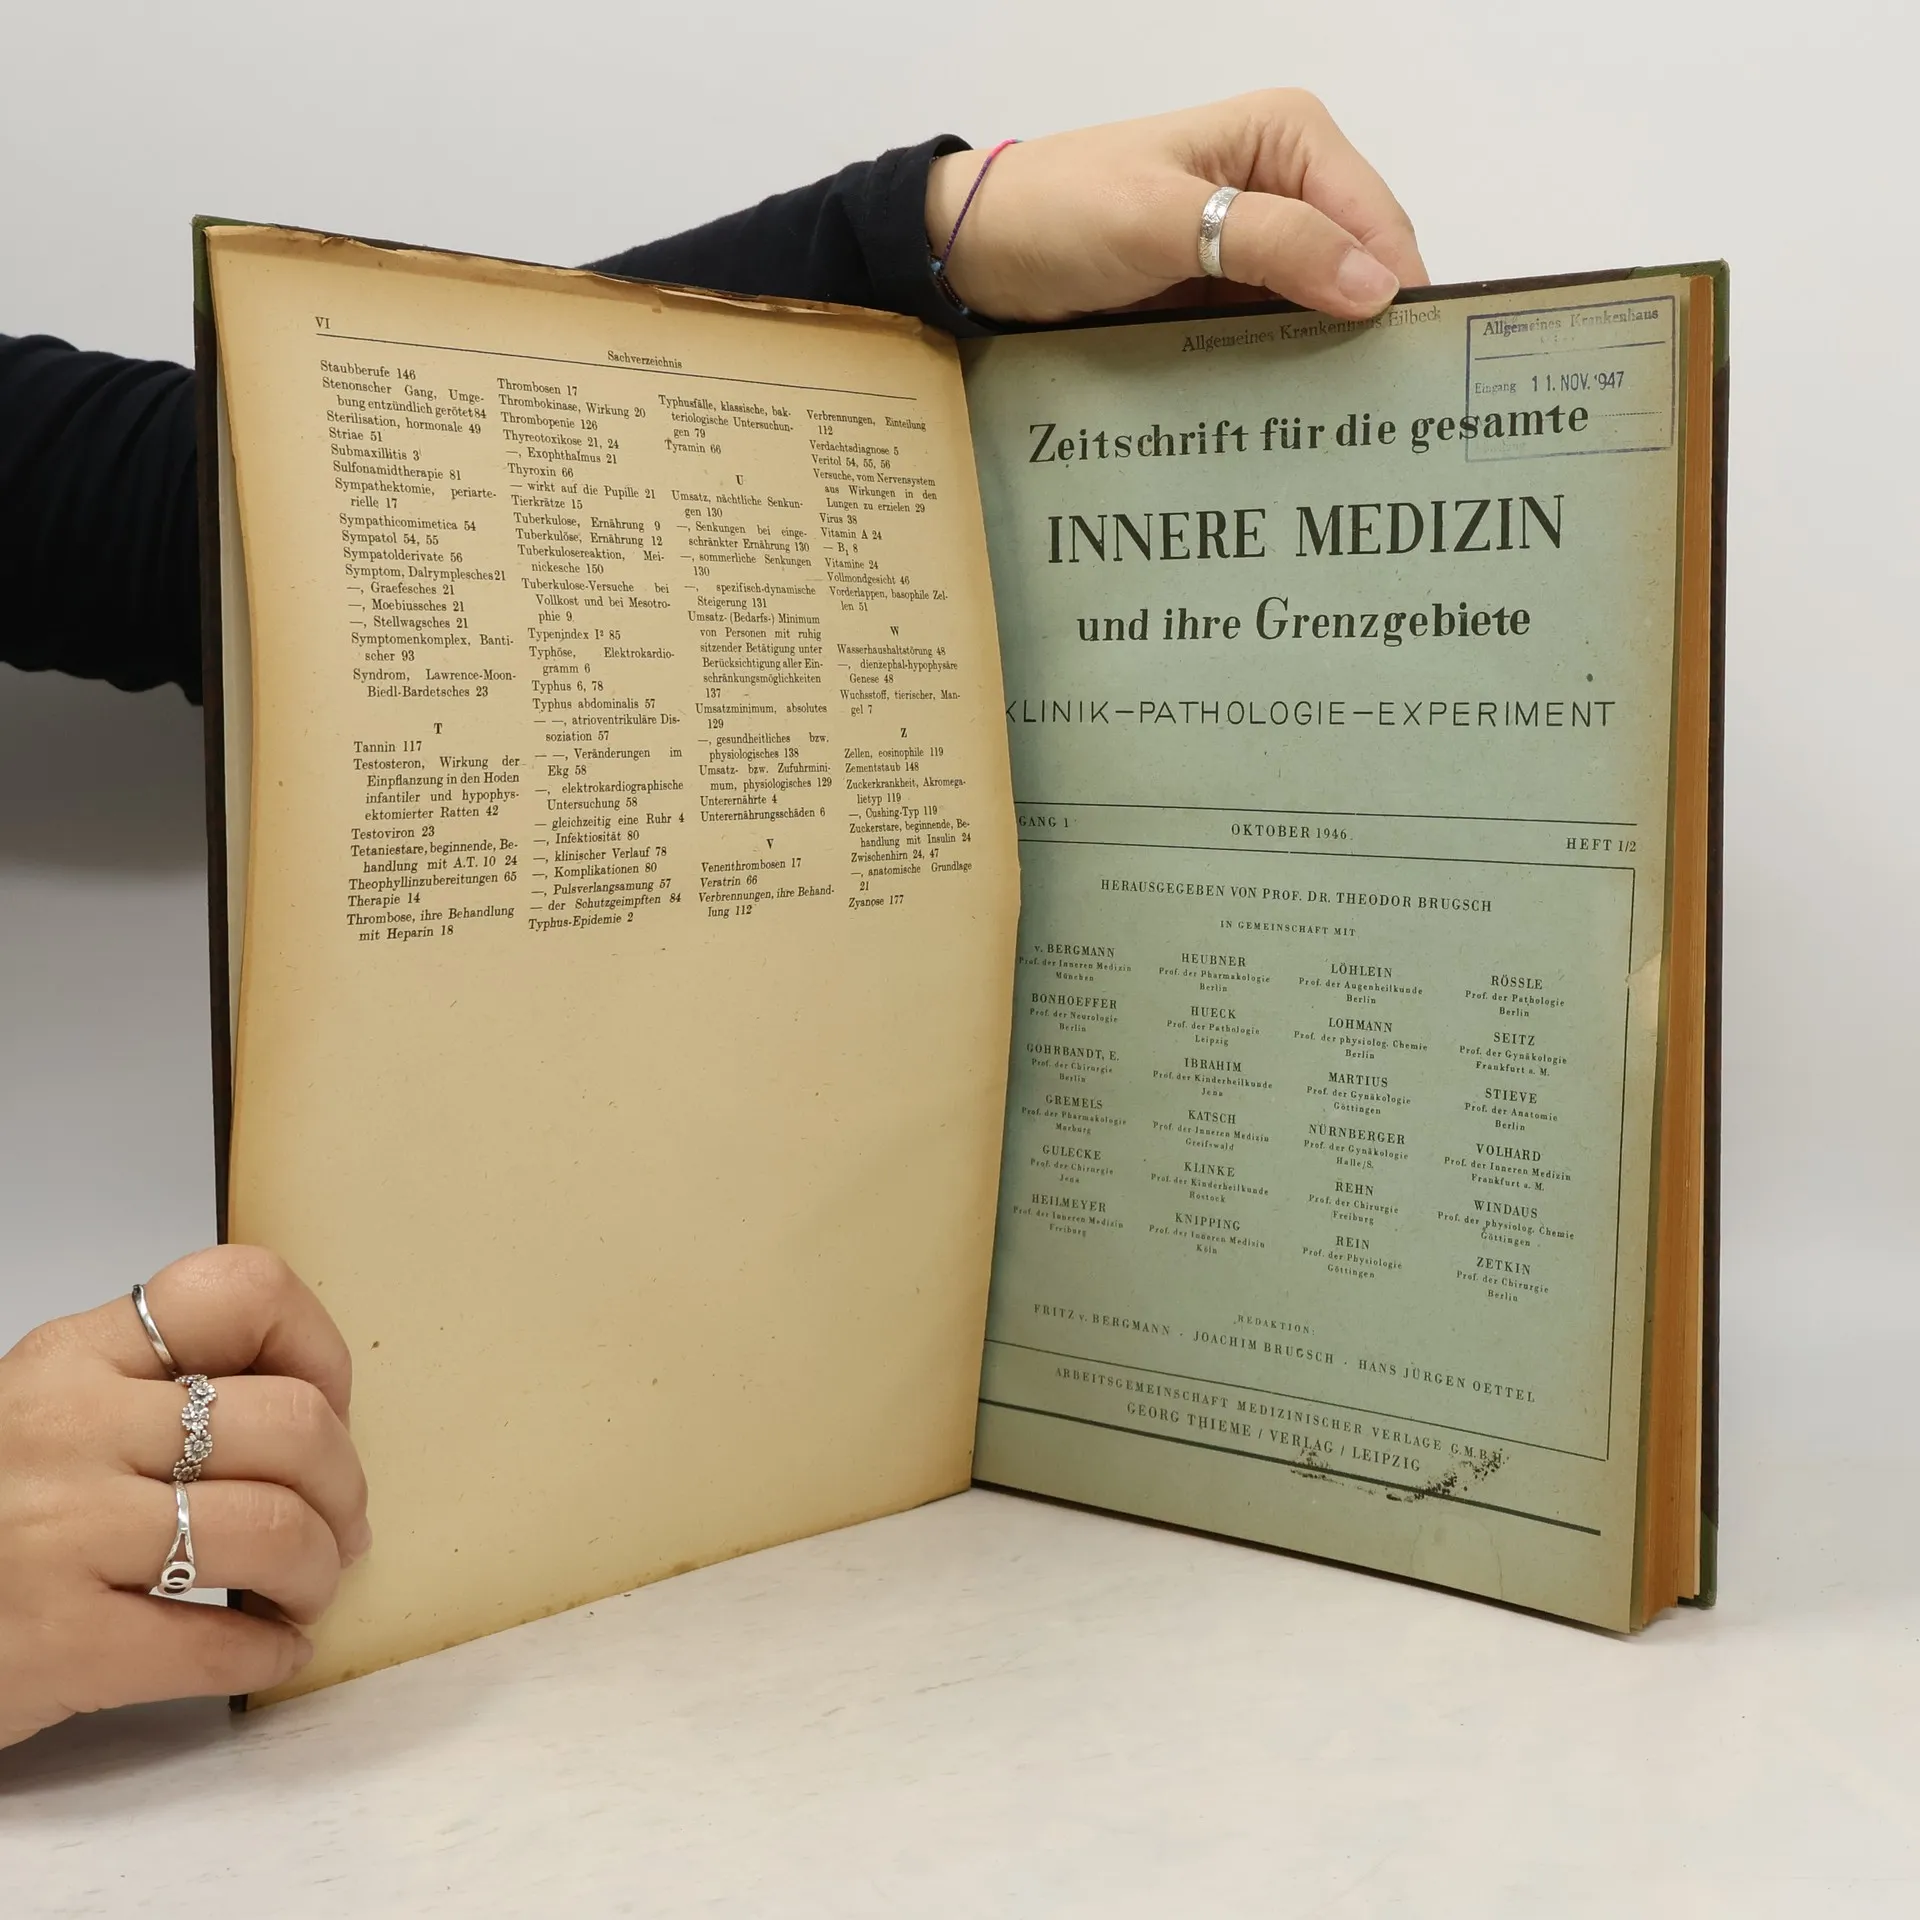 VI
Sachverzeichnis
Staubberufe 146
Stenonscher Gang, Umge-
bung entzündlich gerötet 84
Sterilisation, hormonale 49
Striae 51
Submaxillitis 3
Sulfonamidtherapie 81
Sympathektomie, periarte-
rielle 17
Sympathicomimetica 54
Sympatol 54, 55
Sympatolderivate 56
Symptom, Dalrymplesches 21
—, Graefesches 21
—, Moebiussches 21
—, Stellwagsches 21
Symptomenkomplex, Banti-
scher 93
Syndrom, Lawrence-Moon-
Biedl-Bardetsches 23
T
Tannin 117
Testosteron, Wirkung der
Einpflanzung in den Hoden
infantiler und hypophys-
ektomierter Ratten 42
Testoviron 23
Tetaniestare, beginnende, Be-
handlung mit A.T. 10 24
Theophyllinzubereitungen 65
Therapie 14
Thrombose, ihre Behandlung
mit Heparin 18
Thrombosen 17
Thrombokinase, Wirkung 20
Thrombopenie 126
Thyreotoxikose 21, 24
—, Exophthalmus 21
Thyroxin 66
— wirkt auf die Pupille 21
Tierkrätze 15
Tuberkulose, Ernährung 9
Tuberkulöse, Ernährung 12
Tuberkulosereaktion, Mei-
nickesche 150
Tuberkulose-Versuche bei
Vollkost und bei Mesotro-
phie 9
Typenindex I² 85
Typhöse, Elektrokardio-
gramm 6
Typhus 6, 78
Typhus abdominalis 57
— —, atrioventrikuläre Dis-
soziation 57
— —, Veränderungen im
Ekg 58
—, elektrokardiographische
Untersuchung 58
— gleichzeitig eine Ruhr 4
—, Infektiosität 80
—, klinischer Verlauf 78
—, Komplikationen 80
—, Pulsverlangsamung 57
— der Schutzgeimpften 84
Typhus-Epidemie 2
Typhusfälle, klassische, bak-
teriologische Untersuchun-
gen 79
Tyramin 66
U
Umsatz, nächtliche Senkun-
gen 130
—, Senkungen bei einge-
schränkter Ernährung 130
—, sommerliche Senkungen
130
—, spezifisch-dynamische
Steigerung 131
Umsatz- (Bedarfs-) Minimum
von Personen mit ruhig
sitzender Betätigung unter
Berücksichtigung aller Ein-
schränkungsmöglichkeiten
137
Umsatzminimum, absolutes
129
—, gesundheitliches bzw.
physiologisches 138
Umsatz- bzw. Zufuhrmini-
mum, physiologisches 129
Unterernährte 4
Unterernährungsschäden 6
V
Venenthrombosen 17
Veratrin 66
Verbrennungen, ihre Behand-
lung 112
Verbrennungen, Einteilung
112
Verdachtsdiagnose 5
Veritol 54, 55, 56
Versuche, vom Nervensystem
aus Wirkungen in den
Lungen zu erzielen 29
Virus 38
Vitamin A 24
— B₁ 8
Vitamine 24
Vollmondgesicht 46
Vorderlappen, basophile Zel-
len 51
W
Wasserhaushaltstörung 48
—, dienzephal-hypophysäre
Genese 48
Wuchsstoff, tierischer, Man-
gel 7
Z
Zellen, eosinophile 119
Zementstaub 148
Zuckerkrankheit, Akromega-
lietyp 119
—, Cushing-Typ 119
Zuckerstare, beginnende, Be-
handlung mit Insulin 24
Zwischenhirn 24, 47
—, anatomische Grundlage
21
Zyanose 177
Allgemeines Krankenhaus Eilbeck
Allgemeines Krankenhaus
Eingang 11. NOV. '947
Zeitschrift für die gesamte
INNERE MEDIZIN
und ihre Grenzgebiete
KLINIK–PATHOLOGIE–EXPERIMENT
GANG 1
OKTOBER 1946
HEFT 1/2
HERAUSGEGEBEN VON PROF. DR. THEODOR BRUGSCH
IN GEMEINSCHAFT MIT
v. BERGMANN
Prof. der Inneren Medizin
München
BONHOEFFER
Prof. der Neurologie
Berlin
GOHRBANDT, E.
Prof. der Chirurgie
Berlin
GREMELS
Prof. der Pharmakologie
Marburg
GULECKE
Prof. der Chirurgie
Jena
HEILMEYER
Prof. der Inneren Medizin
Freiburg
HEUBNER
Prof. der Pharmakologie
Berlin
HUECK
Prof. der Pathologie
Leipzig
IBRAHIM
Prof. der Kinderheilkunde
Jena
KATSCH
Prof. der Inneren Medizin
Greifswald
KLINKE
Prof. der Kinderheilkunde
Rostock
KNIPPING
Prof. der Inneren Medizin
Köln
LÖHLEIN
Prof. der Augenheilkunde
Berlin
LOHMANN
Prof. der physiolog. Chemie
Berlin
MARTIUS
Prof. der Gynäkologie
Göttingen
NÜRNBERGER
Prof. der Gynäkologie
Halle/S.
REHN
Prof. der Chirurgie
Freiburg
REIN
Prof. der Physiologie
Göttingen
RÖSSLE
Prof. der Pathologie
Berlin
SEITZ
Prof. der Gynäkologie
Frankfurt a. M.
STIEVE
Prof. der Anatomie
Berlin
VOLHARD
Prof. der Inneren Medizin
Frankfurt a. M.
WINDAUS
Prof. der physiolog. Chemie
Göttingen
ZETKIN
Prof. der Chirurgie
Berlin
REDAKTION:
FRITZ v. BERGMANN · JOACHIM BRUGSCH · HANS JÜRGEN OETTEL
ARBEITSGEMEINSCHAFT MEDIZINISCHER VERLAGE G.M.B.H.
GEORG THIEME / VERLAG / LEIPZIG